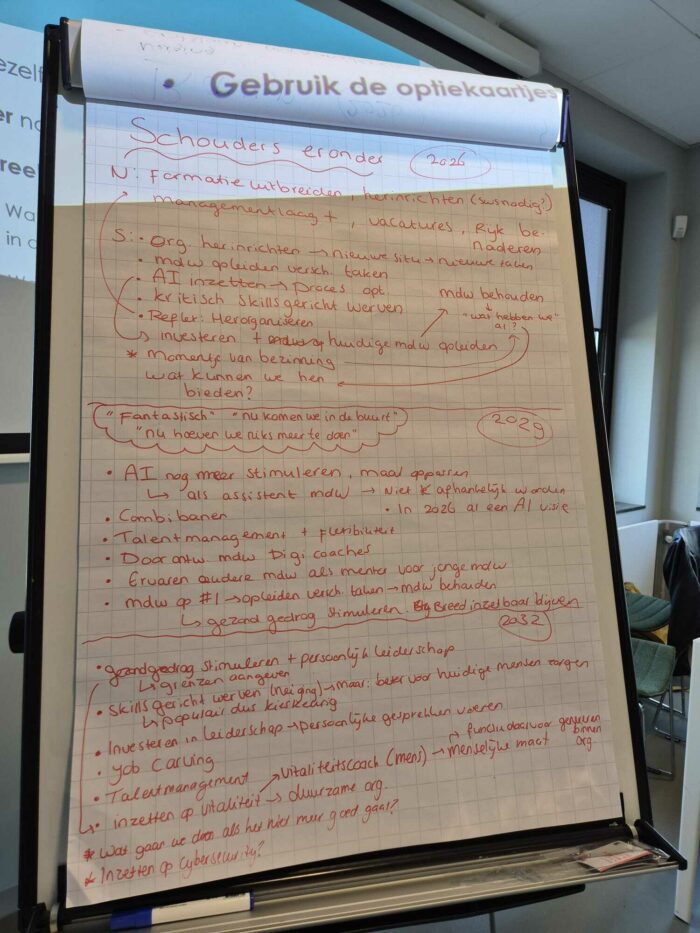 ezelf
er no
reel
Wa
in d
• Gebruik de optiekaartjes
Schouders eronder 2026
N: Formatie uitbreiden, herinrichten (swsnodig?)
managementlaag +, vacatures, Rijk be-
naderen
S: • Org. herinrichten → nieuwe situ → nieuwe taken
• mdw opleiden versch. taken
• AI inzetten → Proces opt.
• kritisch skillsgericht werven
mdw behouden
• Reflex: Herorganiseren
"wat hebben we
al?"
↳ investeren + huidige mdw opleiden
* Momentje van bezinning
wat kunnen we hen
bieden?
"Fantastisch" "nu komen we in de buurt"
"nu hoeven we niks meer te doen"
2029
• AI nog meer stimuleren, maar oppassen
↳ als assistent mdw → Niet afhankelijk worden
• In 2026 al een AI visie
• Combibanen
• Talentmanagement + flexibiliteit
• Doorontw. mdw Digicoaches
• Ervaren oudere mdw als mentor voor jonge mdw
• mdw op #1 → opleiden versch. taken → mdw behouden
↳ gezond gedrag stimuleren. Breed inzetbaar blijven
2032
• gezond gedrag stimuleren + persoonlijk leiderschap
↳ grenzen aangeven
• Skillsgericht werven (neiging) → maar: beter voor huidige mensen zorgen
↳ populair dus kieskeurig
• Investeren in leiderschap → persoonlijke gesprekken voeren
• Job Carving
• Talentmanagement
vitaliteitscoach (mens) → menselijke maat
→ functie daarvoor
binnen
org.
• inzetten op vitaliteit → duurzame org.
* Wat gaan we doen als het niet meer goed gaat?
* Inzetten op cybersecurity?